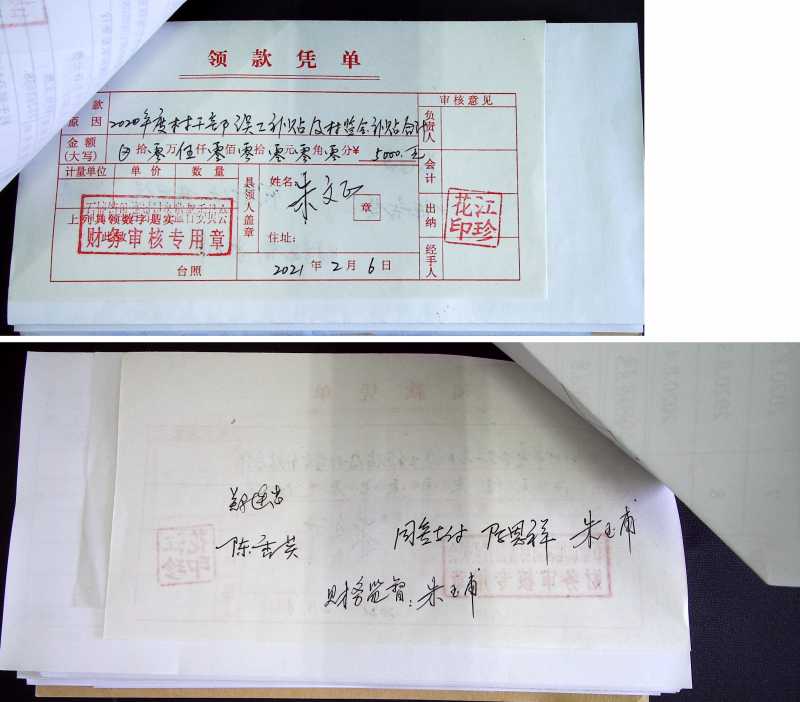 领款凭单
款
原因 2020年度村干部误工补贴及村监会补贴合计
审核意见
负责人
金额(大写) 拾零万伍仟零佰零拾零元零角零分¥ 5000.元
计量单位 单价 数量
具领人盖章
姓名 朱文正
章
会计
上列具领数字是实
财务审核专用章
住址:
出纳
江珍花印
台照
2021年2月6日
经手人
陈香英
同意支付 陈恩祥 朱玉甫
财务监督: 朱玉甫